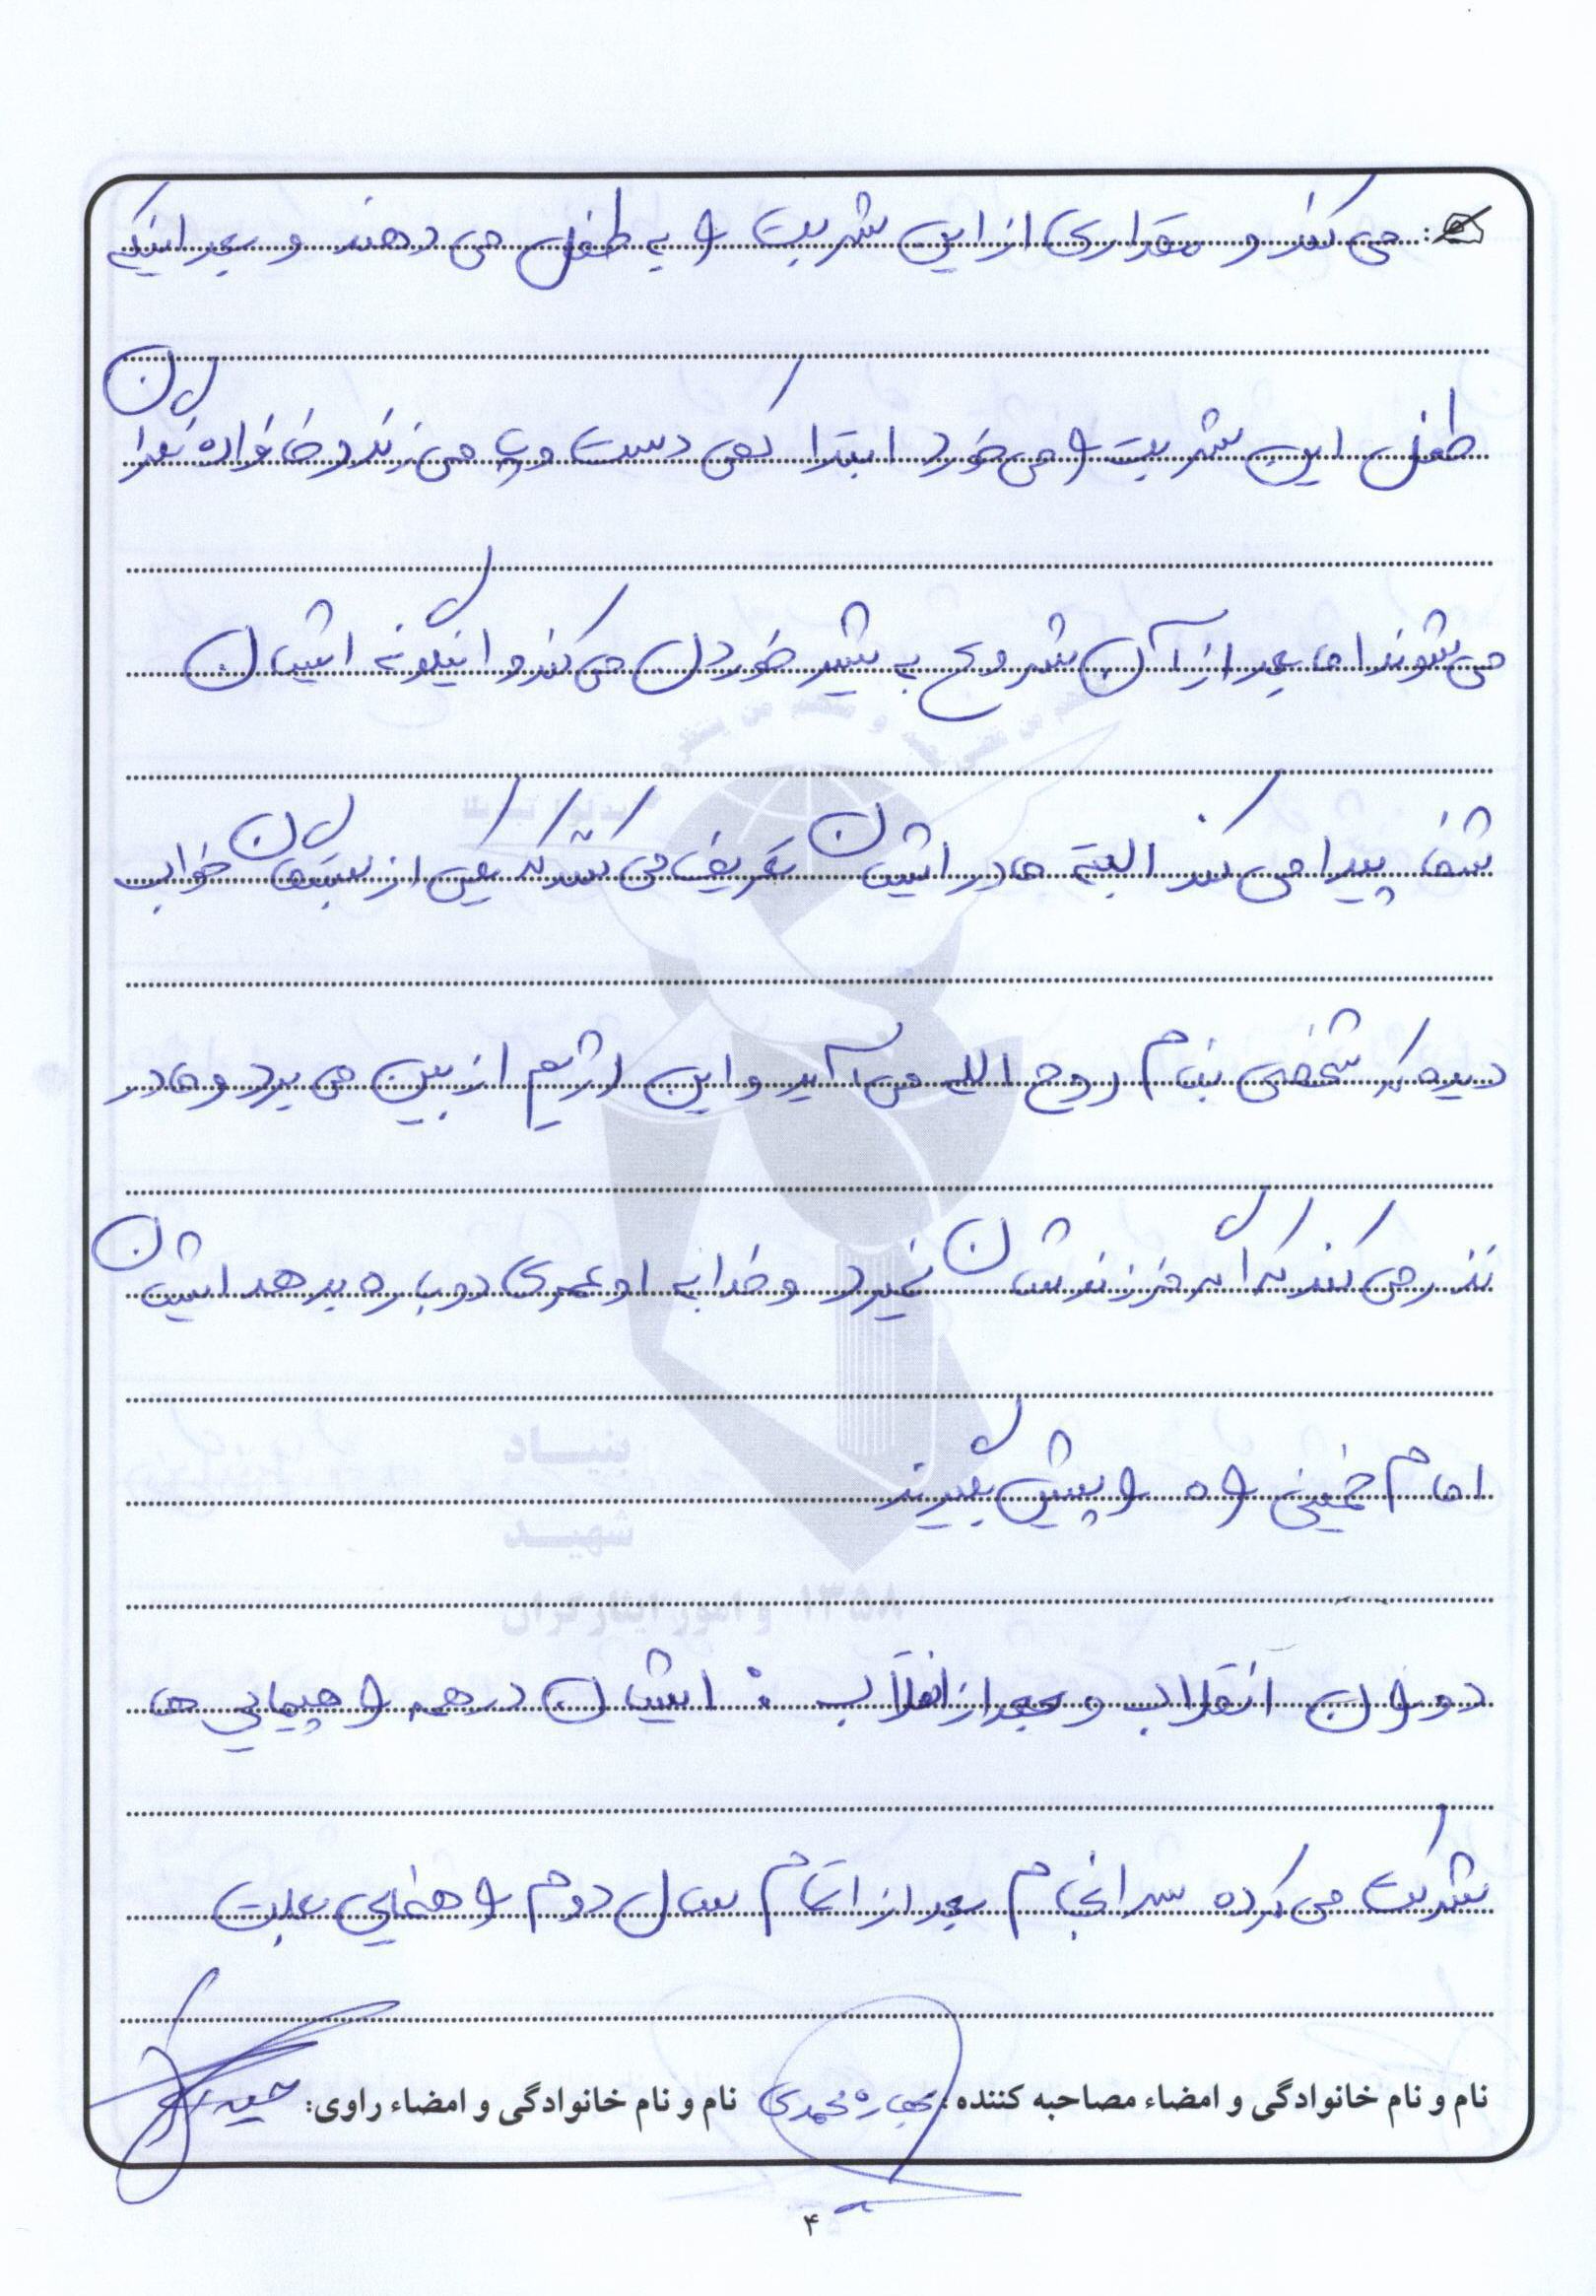 می کند و مقداری از این شربت را به طفل می دهند و بعد اینکه
طفل این شربت را می خورد ابتدا کمی دست و پا می زند و خانواده نگران
می شوند اما بعد از آن شروع به شیر خوردن می کند و اینگونه ایشان
شفا پیدا می کند البته مادر ایشان تعریف می کنند که یکی از بستگان خواب
دیده که شخصی بنام روح الله می آید و این رژیم از بین می برد و مادر
نذر می کند که اگر فرزندشان نمیرد و خدا به او عمری دوباره بدهد ایشان
امام خمینی راه را پیش بگیرند
دوران انقلاب و بعد از انقلاب : ایشان در همه راهپیمایی ها
شرکت می کرده سرانجام بعد از اتمام سال دوم راهنمایی علت
نام و نام خانوادگی و امضاء مصاحبه کننده: محمدی نام و نام خانوادگی و امضاء راوی:
۴
بنیاد
شهید
و امور ایثارگران ۱۳۵۸